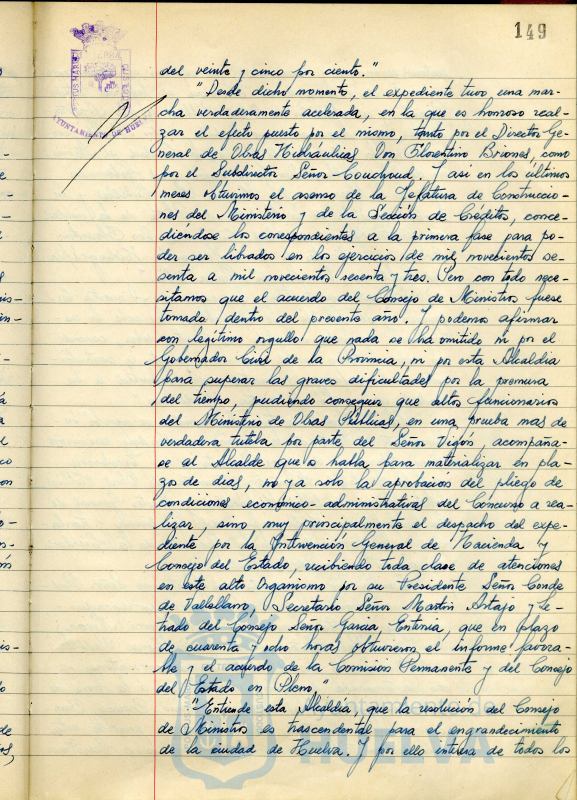 149
AYUNTAMIENTO DE HUELVA
del veinte y cinco por ciento."
"Desde dicho momento, el expediente tuvo una mar-
cha verdaderamente acelerada, en la que es honroso real-
zar el efecto puesto por el mismo, tanto por el Director Ge-
neral de Obras Hidráulicas Don Florentino Briones, como
por el Subdirector Señor Couchoud. Y asi en los últimos
meses obtuvimos el asenso de la Jefatura de Construccio-
nes del Ministerio y de la Sección de Créditos, conce-
diéndose los correspondientes a la primera fase para po-
der ser librados en los ejercicios de mil novecientos se-
senta a mil novecientos sesenta y tres. Pero con todo nece-
sitamos que el acuerdo del Consejo de Ministros fuese
tomada dentro del presente año. Y podemos afirmar
con legítimo orgullo que nada se ha omitido ni por el
Gobernador Civil de la Provincia, ni por esta Alcaldia
para superar las graves dificultades por la premura
del tiempo, pudiendo conseguir que altos funcionarios
del Ministerio de Obras Públicas, en una prueba mas de
verdadera tutela por parte del Señor Vigón, acompaña-
se al Alcalde que os habla para materializar en pla-
zos de dias, no ya solo la aprobación del pliego de
condiciones económico-administrativas del Concurso a rea-
lizar, sino muy principalmente el despacho del expe-
diente por la Intervención General de Hacienda y
Consejo del Estado, recibiendo toda clase de atenciones
en este alto Organismo por su Presidente Señor Conde
de Vallellano, Secretario Señor Martín Artajo y Le-
trado del Consejo Señor Garcia Enterria, que en plazo
de cuarenta y ocho horas obtuvieron el informe favora-
ble y el acuerdo de la Comisión Permanente y del Concejo
del Estado en Pleno."
"Entiende esta Alcaldía que la resolución del Consejo
de Ministros es trascendental para el engrandecimiento
de la ciudad de Huelva. Y por ello interesa de todos los